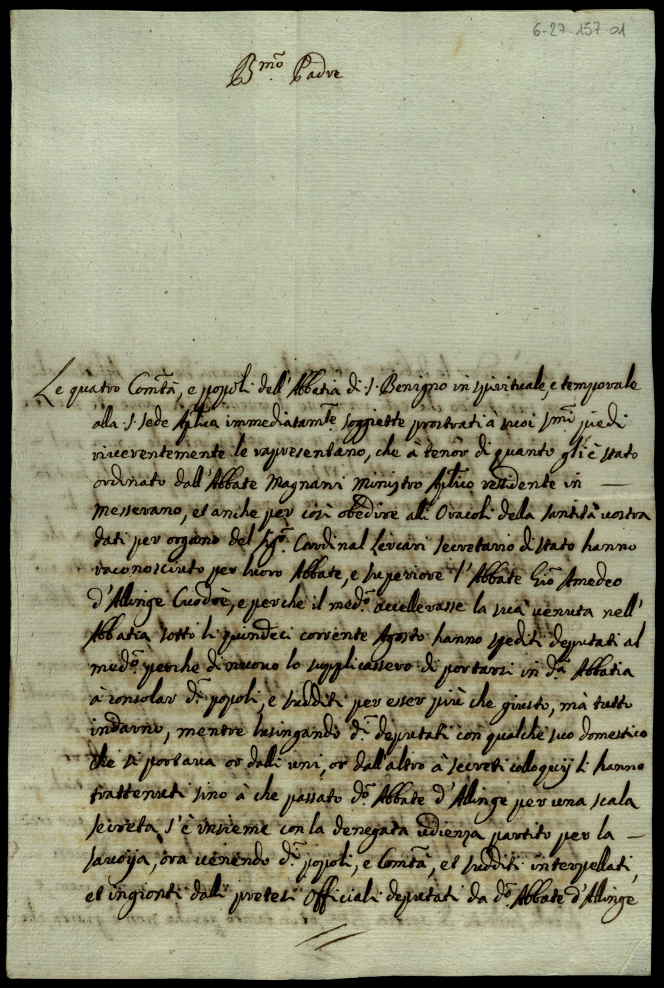 6-27-157-01
B.mo Padre
Le quatro Com.tà, e popoli dell'Abbatia di S. Benigno in spirituale, e temporale
alla S. Sede Aplica immediatam.te soggiette prostrati à suoi S.mi piedi
riverentemente le rapresentano, che à tenor di quanto gli è stato
ordinato dall'Abbate Magnani Ministro Aplico residente in —
Messerano, et anche per così obedire alli Oracoli della Santità vostra
dati per organo del Sig.r Cardinal Lercari Secretario di stato hanno
raconosciuto per luoro Abbate, e superiore l'Abbate Gio Amedeo
d'Allinge Cudrè, e perche il med.o accellerasse la sua venuta nell'
Abbatia sotto li quindeci corrente Agosto hanno spediti deputati al
med.o perche di nuovo lo supplicassero di portarsi in d.a Abbatia
à consolar d.i popoli, e sudditi per esser più che giusto, mà tutto
indarno, mentre lusingando d.i deputati con qualche suo domestico
che si portava or dalli uni, or dall'altro à secreti colloquij li hanno
trattenuti sino à che passato d.o Abbate d'Allinge per una scala
secreta s'è insieme con la denegata udienza partito per la —
Savoija, ora venendo d.i popoli, e Com.tà, et sudditi interpellati,
et ingionti dalli pretesi Officiali deputati da d.o Abbate d'Allinge